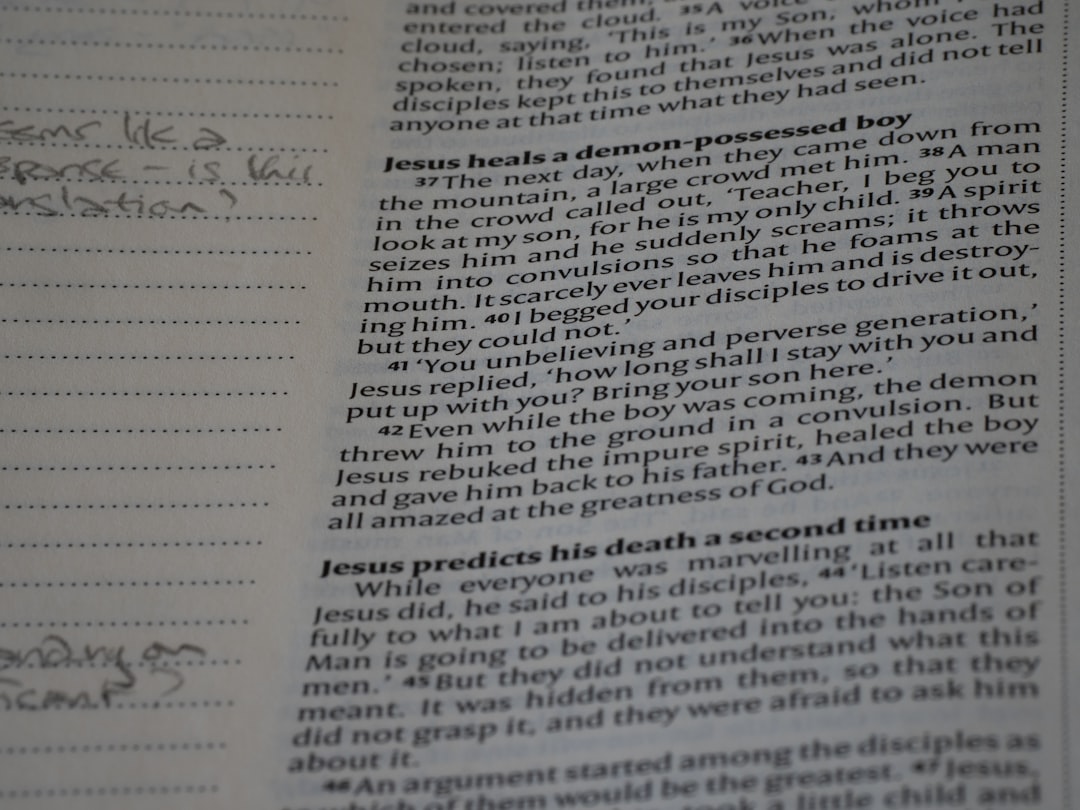 seems like a
– is this
translation?
and covered them,
entered the cloud. 35 A voice
cloud, saying, ‘This is my Son, whom
chosen; listen to him.’ 36 When the voice had
spoken, they found that Jesus was alone. The
disciples kept this to themselves and did not tell
anyone at that time what they had seen.
Jesus heals a demon-possessed boy
37 The next day, when they came down from
the mountain, a large crowd met him. 38 A man
in the crowd called out, ‘Teacher, I beg you to
look at my son, for he is my only child. 39 A spirit
seizes him and he suddenly screams; it throws
him into convulsions so that he foams at the
mouth. It scarcely ever leaves him and is destroy-
ing him. 40 I begged your disciples to drive it out,
but they could not.’
41 ‘You unbelieving and perverse generation,’
Jesus replied, ‘how long shall I stay with you and
put up with you? Bring your son here.’
42 Even while the boy was coming, the demon
threw him to the ground in a convulsion. But
Jesus rebuked the impure spirit, healed the boy
and gave him back to his father. 43 And they were
all amazed at the greatness of God.
Jesus predicts his death a second time
While everyone was marvelling at all that
Jesus did, he said to his disciples, 44 ‘Listen care-
fully to what I am about to tell you: the Son of
Man is going to be delivered into the hands of
men.’ 45 But they did not understand what this
meant. It was hidden from them, so that they
did not grasp it, and they were afraid to ask him
about it.
46 An argument started among the disciples as
which of them would be the greatest. 47 Jesus,
took a little child and